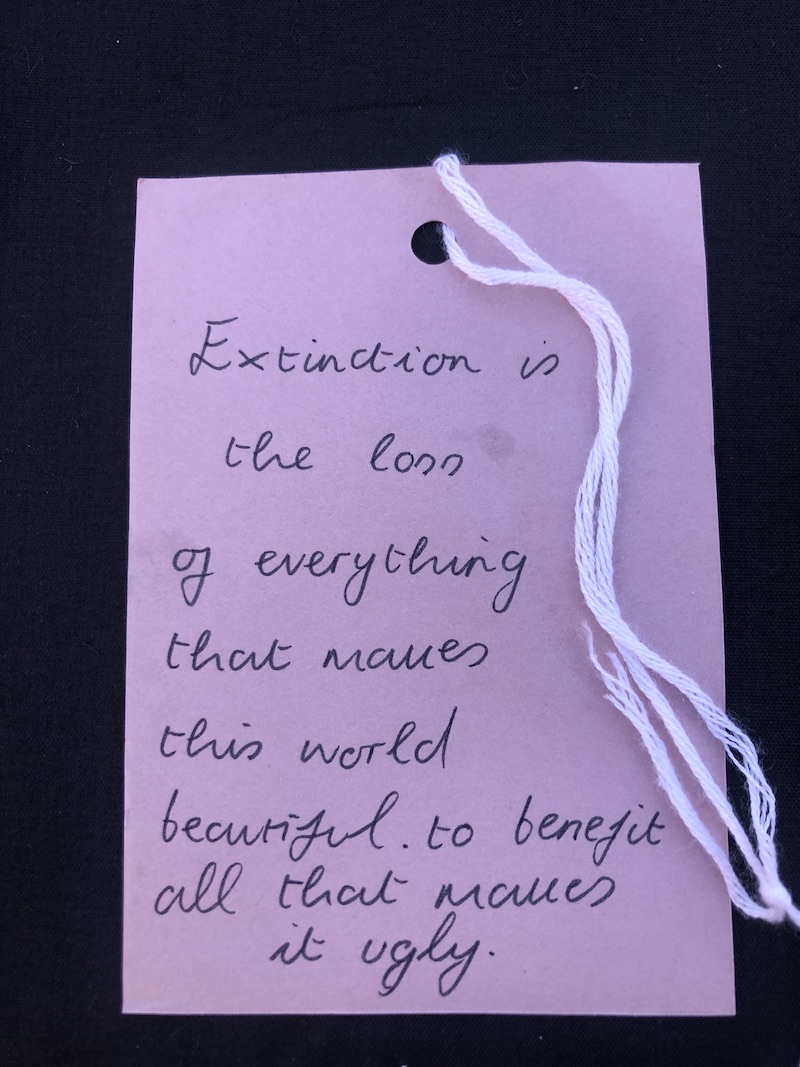 Extinction is
the loss
of everything
that makes
this world
beautiful. to benefit
all that makes
it ugly.